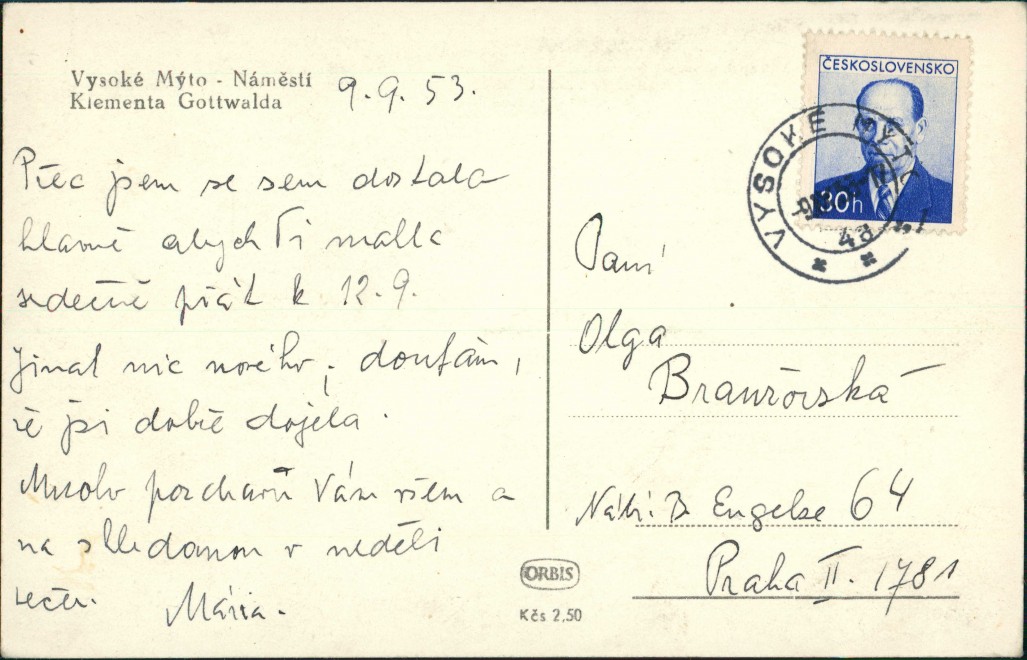 Vysoké Mýto - Náměstí
Klementa Gottwalda
9.9.53.
Přec jsem se sem dostala
hlavně abych Ti mohla
srdečně přát k 12.9.
Jinak nic nového, doufám,
že jsi dobře dojela.
Mnoho pozdravů Vám všem a
na shledanou v neděli
večer. Mária.
ČESKOSLOVENSKO
30h
VYSOKÉ MÝTO
Paní
Olga
Nábř. B. Engelse 64
Praha II. 1781
ORBIS
Kčs 2,50